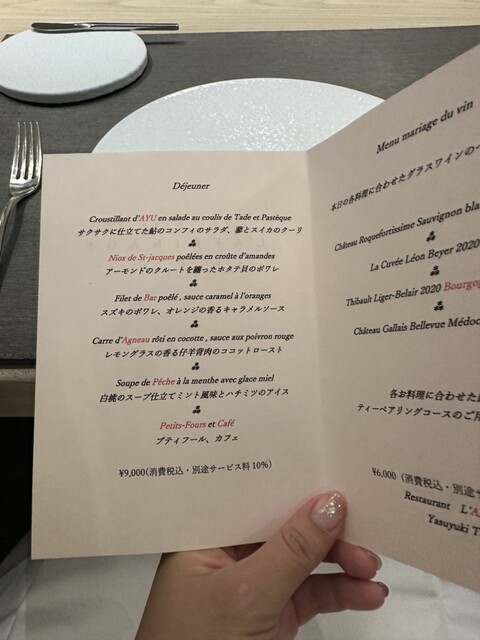 Déjeuner
Croustillant d'AYU en salade au coulis de Tade et Pastèque
サクサクに仕立てた鮎のコンフィのサラダ、蓼とスイカのクーリ
Niox de St-jacques poêlées en croûte d'amandes
アーモンドのクルートを纏ったホタテ貝のポワレ
Filet de Bar poêlé , sauce caramel à l'oranges
スズキのポワレ、オレンジの香るキャラメルソース
Carre d'Agneau rôti en cocotte , sauce aux poivron rouge
レモングラスの香る仔羊背肉のココットロースト
Soupe de Pêche à la menthe avec glace miel
白桃のスープ仕立てミント風味とハチミツのアイス
Petits-Fours et Café
プティフール、カフェ
¥9,000(消費税込・別途サービス料10%)
Menu mariage du vin
本日の各料理に合わせたグラスワインの
Château Roquefortissime Sauvignon
La Cuvée Léon Beyer 2020
Thibault Liger-Belair 2020
Château Gallais Bellevue Médoc
各お料理に合わせた
ティーペアリングコースのご
¥6,000 (消費税込・別途
Restaurant
Yasuyuki